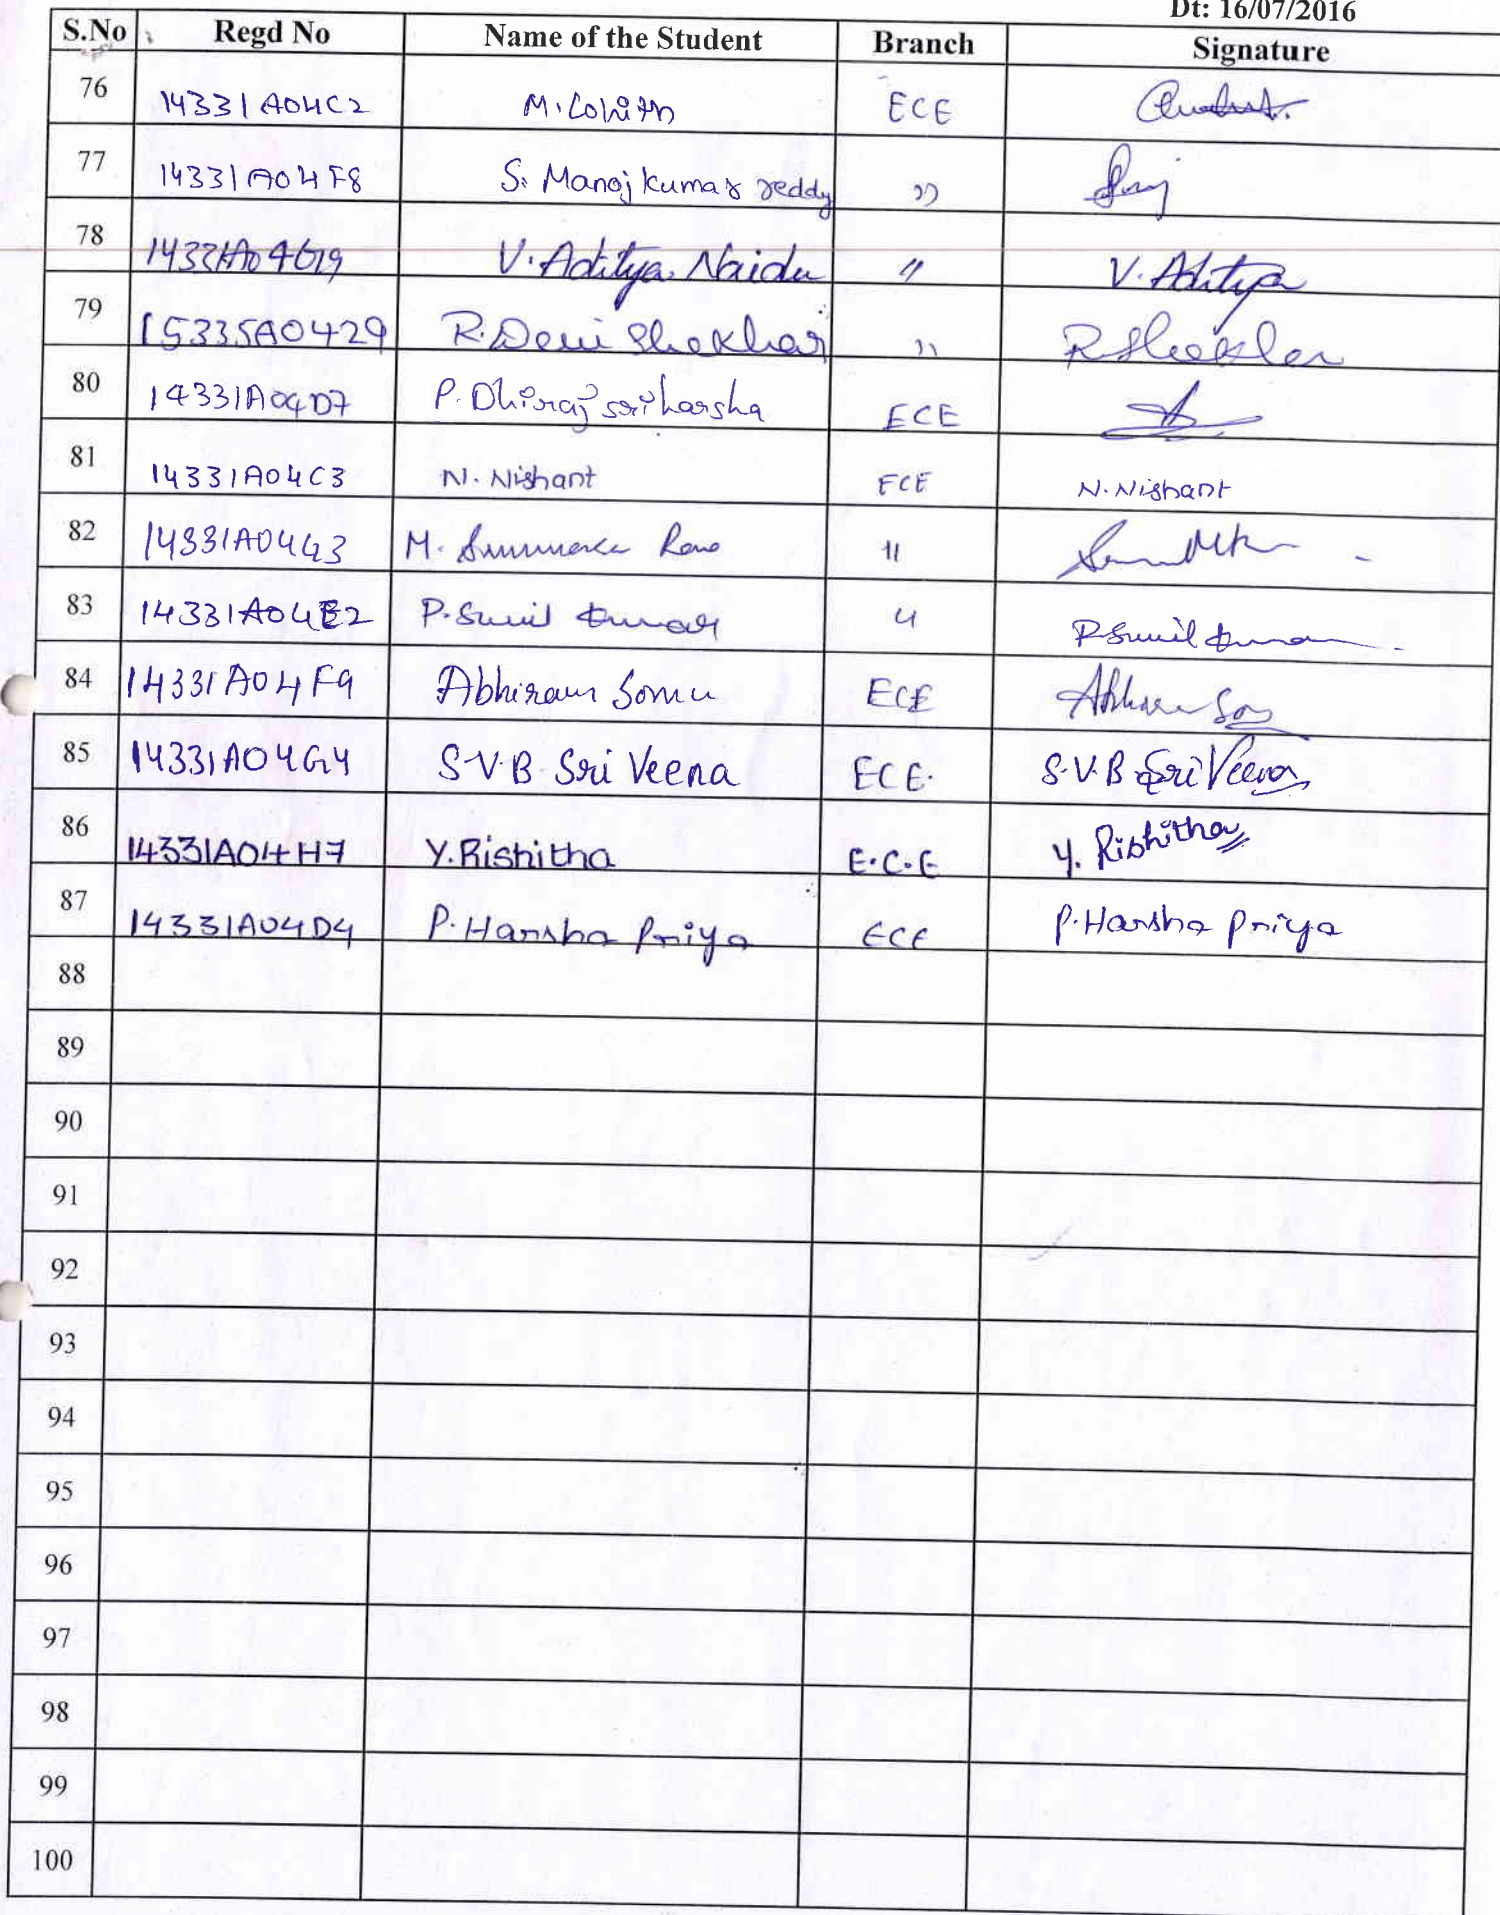 Dt: 16/07/2016
S.No Regd No Name of the Student Branch Signature
76 14331A04C2 M. Lohith ECE
77 14331A04F8 S. Manoj Kumar reddy "
78 14331A04G9 V. Aditya Naidu " V. Aditya
79 15335A0429 R. Devi Shekhar " R Shekhar
80 14331A04D7 P. Dhiraj sri harsha ECE
81 14331A04C3 N. Nishant ECE N. Nishant
82 14331A04G3 M. Rao "
83 14331A04E2 P. Sunil Kumar " P Sunil Kumar
84 14331A04F9 Abhiram Somu ECE
85 14331A04G4 S.V.B. Sri Veena ECE. S.V.B Sri Veena
86 14331A04H7 Y. Rishitha E.C.E Y. Rishitha
87 14331A04D4 P. Harsha Priya ECE P. Harsha Priya
88
89
90
91
92
93
94
95
96
97
98
99
100